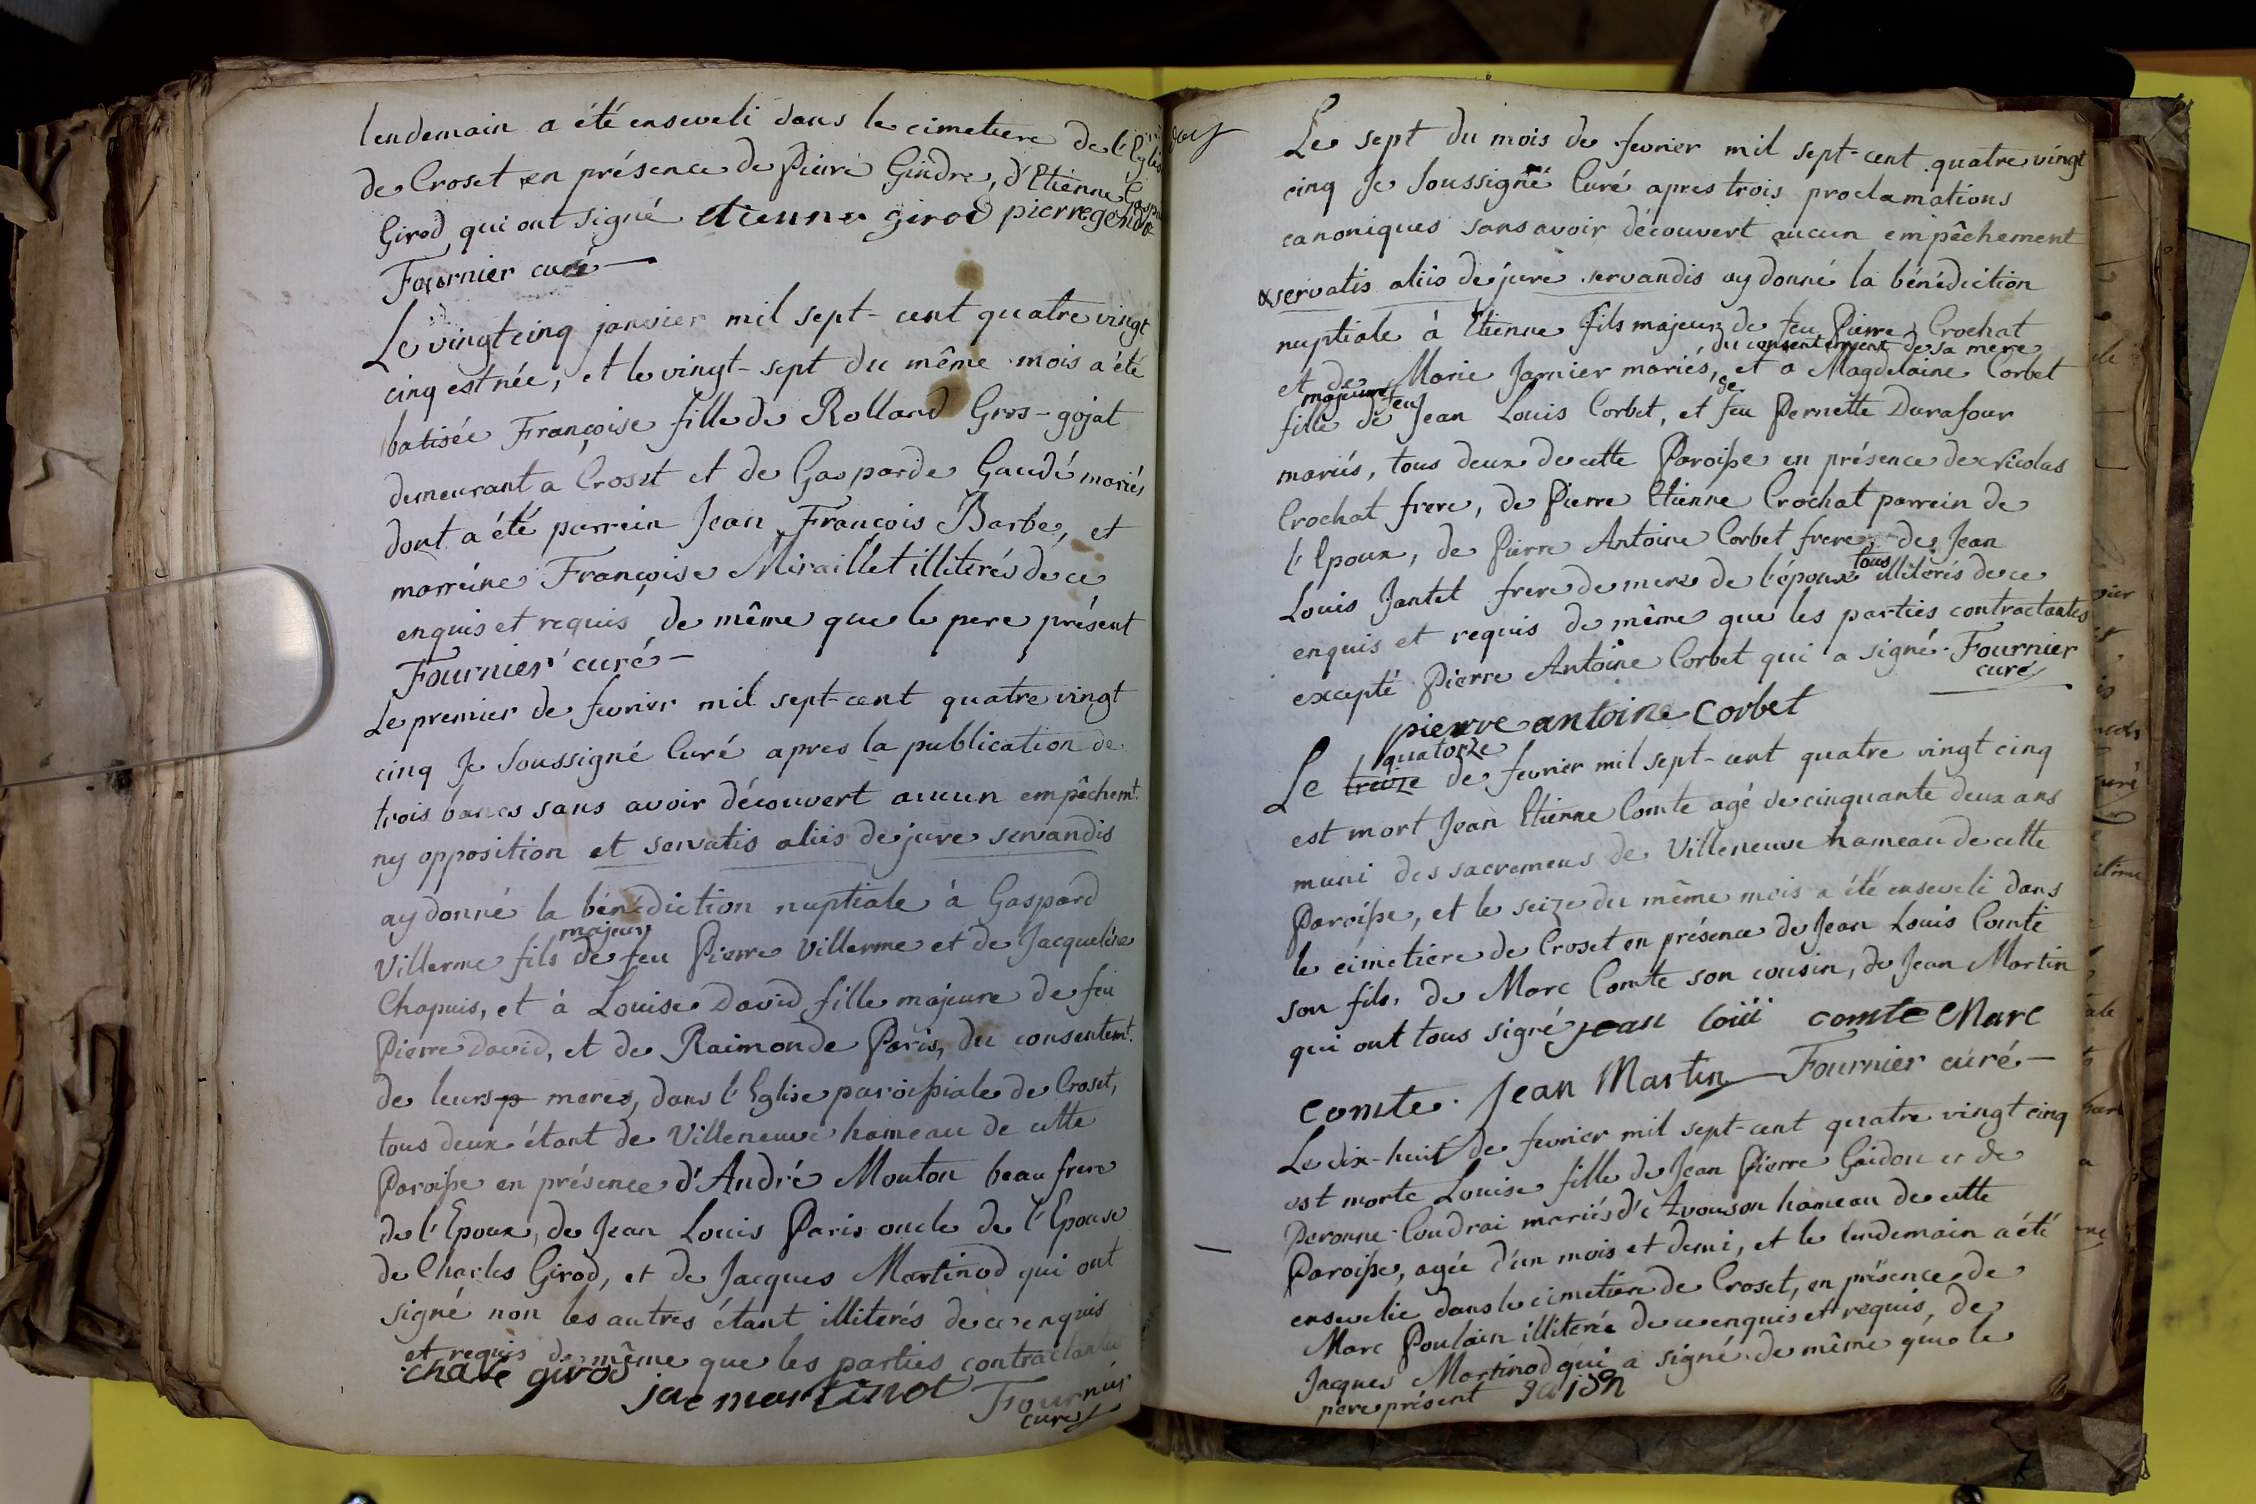 lendemain a été enseveli dans le cimetiere de l'Eglise
de Croset en présence de Pierre Gindre, d'Etienne Gaspard
Girod qui ont signé etienne girod pierre gendre
Fournier curé
Le vingt cinq janvier mil sept-cent quatre vingt
cinq est née, et le vingt-sept du même mois a été
batisée Françoise fille de Rolland Gros-gojat
demeurant a Croset et de Gasparde Gaudé mariés
dont a été parrein Jean François Barbe, et
marreine Françoise Miraillet illiterés de ce
enquis et requis de même que le pere présent
Fournier curé
Le premier de fevrier mil sept-cent quatre vingt
cinq Je soussigné Curé apres la publication de
trois bancs sans avoir découvert aucun empêchemt.
ny opposition et servatis aliis de jure servandis
ay donné la bénédiction nuptiale à Gaspard
majeur
Villerme fils de feu Pierre Villerme et de Jacqueline
Chapuis, et à Louise David fille majeure de feu
Pierre David, et de Raimonde Paris, du consentemt.
de leurs meres, dans l'Eglise paroissiale de Croset,
tous deux étant de Villeneuve hameau de cette
Paroisse en présence d'André Mouton beau frere
de l'Epoux, de Jean Louis Paris oncle de l'Epouse
de Charles Girod, et de Jacques Martinod qui ont
signé non les autres étant illiterés de ce enquis
et requis de même que les parties contractantes
chale girod
jac martinot Fournier
curé
Le sept du mois de fevrier mil sept-cent quatre vingt
cinq Je soussigné Curé apres trois proclamations
canoniques sans avoir découvert aucun empêchement
& servatis aliis de jure servandis ay donné la bénédiction
nuptiale à Etienne fils majeur de feu Pierre Crochat
du consentement de sa mere
et de Marie Jarnier mariés, et a Magdelaine Corbet
majeure feu de
fille de Jean Louis Corbet, et feu Pernette Durafour
mariés, tous deux de cette Paroisse en présence de Nicolas
Crochat frere, de Pierre Etienne Crochat parrein de
l'Epoux, de Pierre Antoine Corbet frere, de Jean
tous
Louis Jantet frere de mere de l'épouse illiterés de ce
enquis et requis de même que les parties contractantes
excepté Pierre Antoine Corbet qui a signé. Fournier
curé
pierre antoine corbet
quatorze
Le treize de fevrier mil sept-cent quatre vingt cinq
est mort Jean Etienne Comte agé de cinquante deux ans
muni des sacremens de Villeneuve hameau de cette
Paroisse, et le seize du même mois a été enseveli dans
le cimetiere de Croset en présence de Jean Louis Comte
son fils, de Marc Comte son cousin, de Jean Martin
qui ont tous signé jean loüi comte Marc
comte. Jean Martin Fournier curé
Le dix-huit de fevrier mil sept-cent quatre vingt cinq
est morte Louise fille de Jean Pierre Gaidon et de
Peronne Coudrai mariés d'Avouson hameau de cette
Paroisse, agée d'un mois et demi, et le lendemain a été
ensevelie dans le cimetiere de Croset, en présence de
Marc Poulain illiterée de ce enquis et requis, de
Jacques Martinod qui a signé de même que le
pere présent